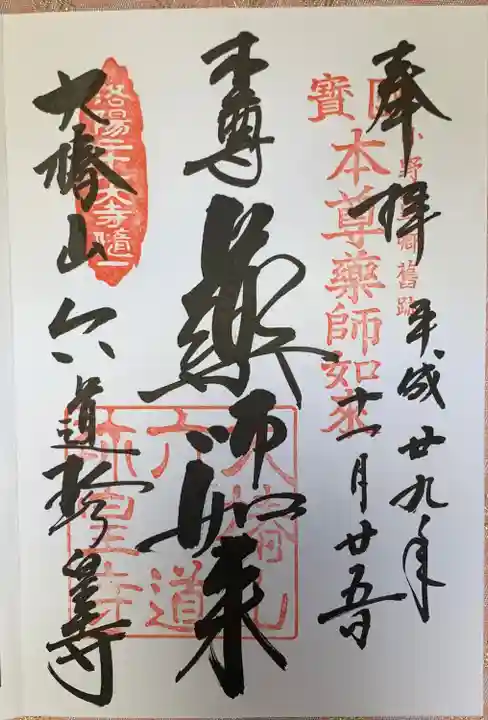 奉拝
平成廿九年
十一月廿五日
小野篁卿舊跡
國寶
本尊薬師如來
本尊 薬師如来
大椿山 六道珍皇寺
洛陽二十大寺随一
大椿山
六道
珍皇寺